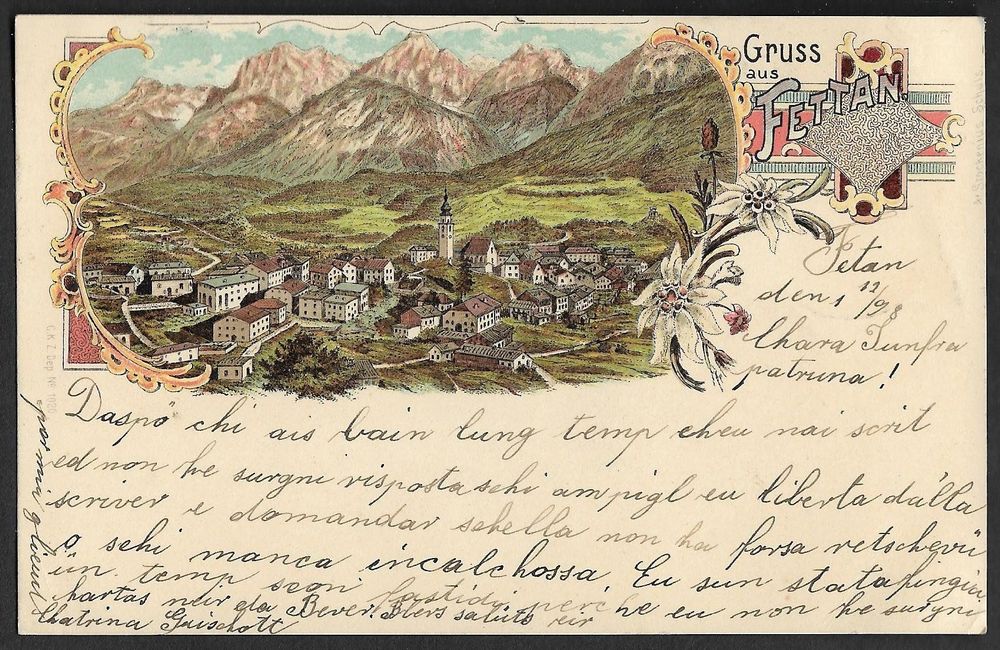 Gruss
aus
FETTAN.
Fetan
den 1 11/9 8
Chara Junfra
patruna!
Daspö chi ais bain lung temp cheu nai scrit
ed non he surgni risposta schi am pigl eu liberta dalla
scriver e domandar schella non ha forsa retschevü
o schi manca incalchossa. Eu sun stata
ün temp in fastidi perche eu non he surgni
hartas nur da Bever. Blers salüds eir
Chatrina
C.K.Z. Dep. No